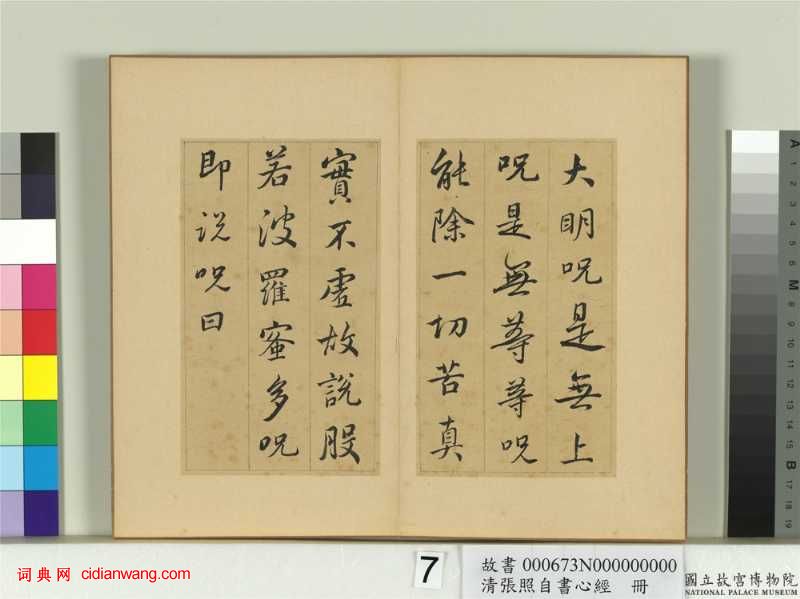 大明呪是無上
呪是無等等呪
能除一切苦真
實不虛故說般
若波羅蜜多呪
即説呪曰
A 1 2 3 4 5 6 M 8 9 10 11 12 13 14 15 B 17 18 19
7
故書 000673N000000000
清張照自書心經 冊
國立故宮博物院
NATIONAL PALACE MUSEUM
词典网 cidianwang.com